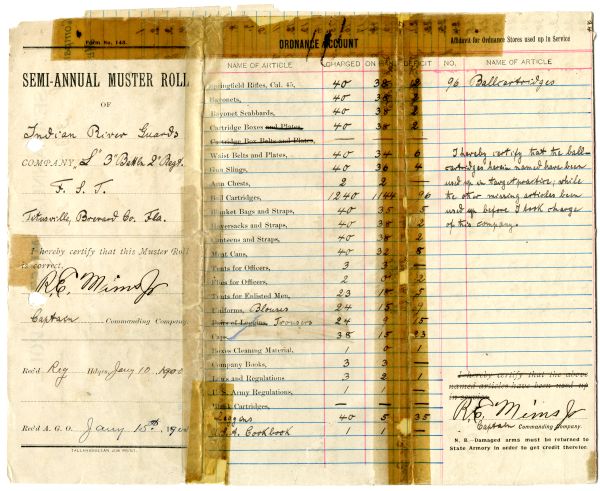 Form No. 143.
SEMI-ANNUAL MUSTER ROLL
OF
Indian River Guards
COMPANY, "L" 3" Battn 2" Regt.
F. S. T.
Titusville, Brevard Co. Fla.
I hereby certify that this Muster Roll
is correct.
R. E. Mims Jr
Captain Commanding Company.
Rec'd Reg Hdqrs, Jany 10, 1900
Rec'd A. G. O. Jany 15th, 190
TALLAHASSEEAN JOB PRINT.
ORDNANCE ACCOUNT
NAME OF ARTICLE CHARGED ON DEFICIT
Springfield Rifles, Cal. 45, 40 38 2
Bayonets, 40 38 2
Bayonet Scabbards, 40 38 2
Cartridge Boxes and Plates, 40 38 2
Cartridge Box Belts and Plates,
Waist Belts and Plates, 40 34 6
Gun Slings, 40 36 4
Arm Chests, 2 2 —
Ball Cartridges, 1240 1144 96
Blanket Bags and Straps, 40 35 5
Haversacks and Straps, 40 38 2
Canteens and Straps, 40 38 2
Meat Cans, 40 32 8
Tents for Officers, 3 3 —
Flies for Officers, 2 0 2
Tents for Enlisted Men, 23 18 5
Uniforms, Blouses 24 15 9
Pairs of Leggins, Trousers 24 9 15
Caps, 38 15 23
Boxes Cleaning Material, 1 0 1
Company Books, 3 3 —
Laws and Regulations 3 2 1
U. S. Army Regulations, 1 1 —
Blank Cartridges, —
Leggens 40 5 35
U.S.A. Cookbook 1 1 —
Affidavit for Ordnance Stores used up in Service
NO. NAME OF ARTICLE
96 Ballcartridges
I hereby certify that the ball-
cartridges herein named have been
used up in target practice; while
the other missing articles been
used up before I took charge
of this company.
I hereby certify that the above
named articles have been used up
in service.
R. E. Mims Jr
Captain Commanding Company.
N. B.—Damaged arms must be returned to
State Armory in order to get credit therefor.